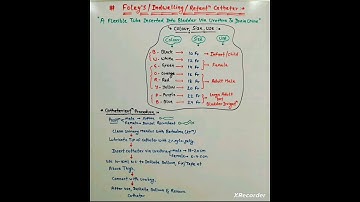 # Foley's / Indwelling / Retent" Catheter
"A Flexible Tube Inserted Into Bladder Via Urethra To Drain Urine"
Colour, Size, Use
Colour Size Use
B - Black 10 Fr Infant/Child
W - White 12 Fr
G - Green 14 Fr Female
O - Orange 16 Fr
R - Red 18 Fr Adult Male
Y - Yellow 20 Fr
P - Purple 22 Fr Large Adult
B - Blue 24 Fr Bladder
Procedure
Male
Female Dorsal Recumbent
Clean Urinary Meatus with Betadine
Lubricate Tip of catheter with 2% xylo. jelly
Insert catheter via urethra Male - 18-20 cm
Female
to Inflate Balloon, Fix/Tape at
Thigh.
Connect with Urobag.
After use, Deflate Balloon & Remove
Catheter
XRecorder